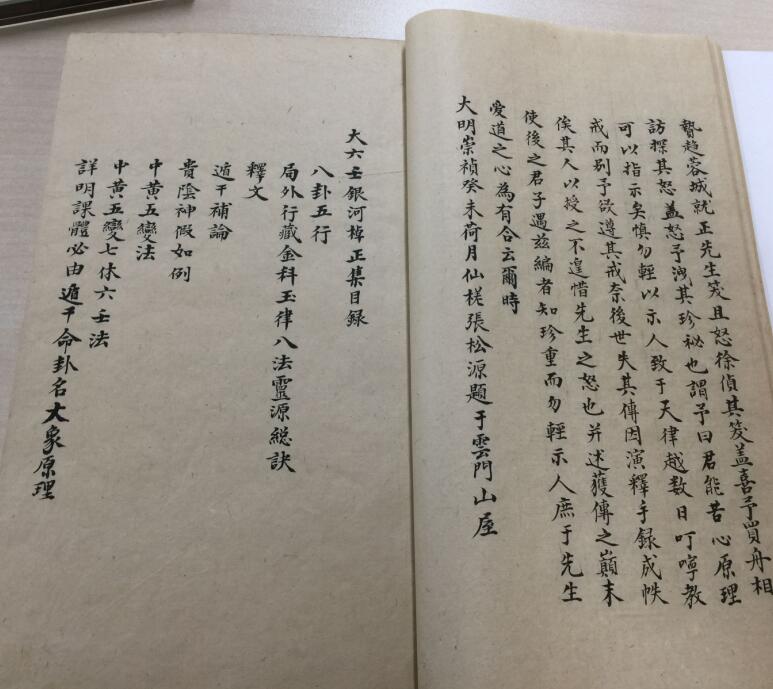 贄趋蓉城就正先生笑且怒徐偵其笑盖喜予買舟相
訪探其怒盖怒予洩其珍秘也謂予曰君能苦心原理
可以指示矣慎勿輕以示人致于天律越数日叮嚀教
戒而别予欲遵其戒奈後世失其傳因演釋手録成帙
俟其人以授之不遑惜先生之怒也并述獲傳之巔末
使後之君子遇兹編者知珍重而勿輕示人庶于先生
愛道之心為有合云爾時
大明崇禎癸未荷月仙槎張松源題于雲門山屋
大六壬銀河棹正集目録
八卦五行
局外行藏金科玉律八法靈源総訣
釋文
遁干補論
貴陰神假如例
中黄五變法
中黄五變七体六壬法
詳明課體必由遁干命卦名大象原理